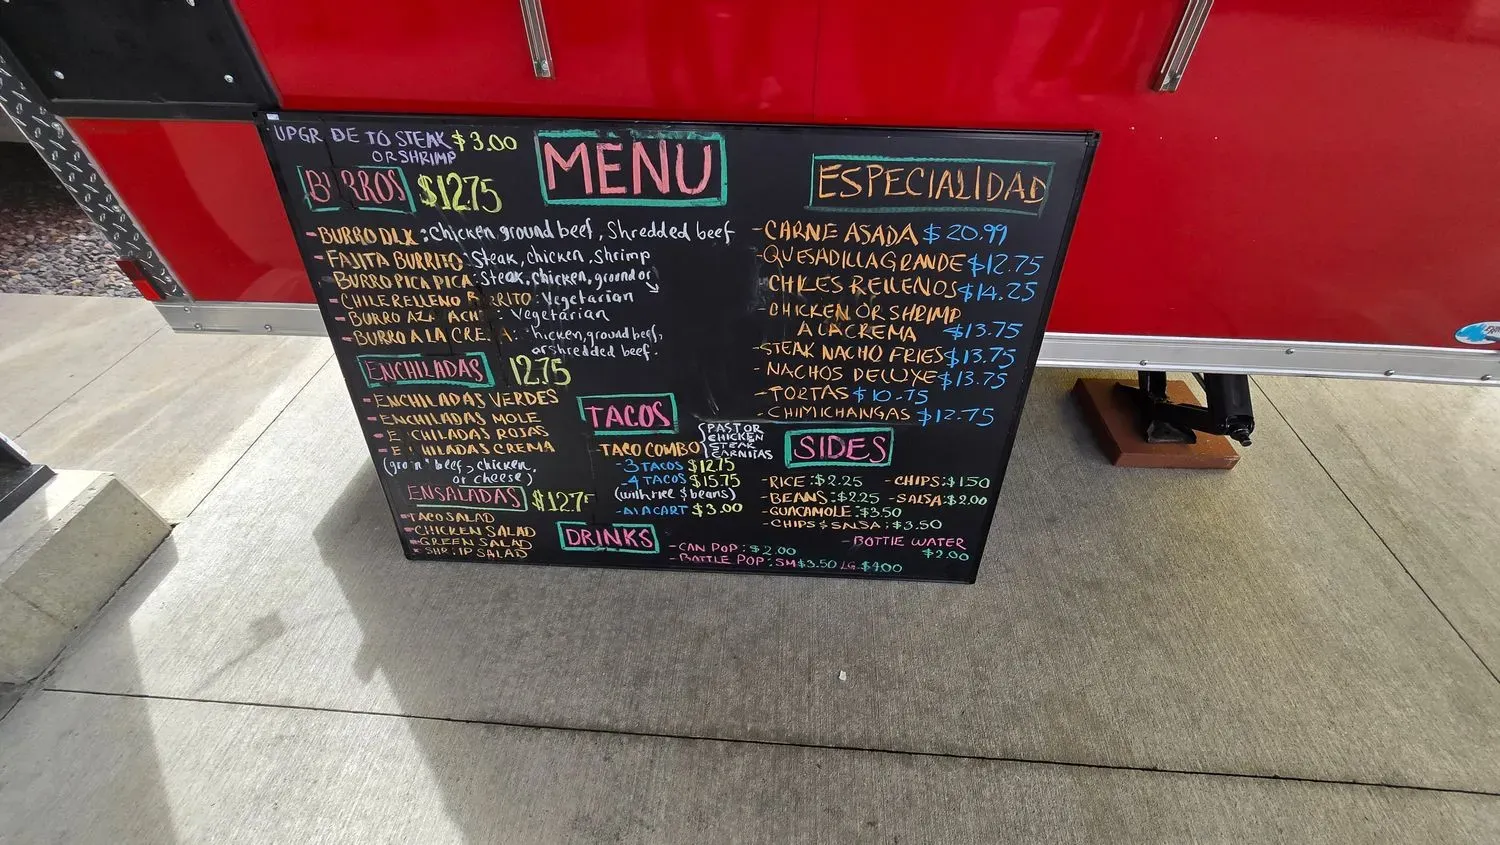 UPGR DE TO STEAK $3.00
OR SHRIMP
MENU
BURROS $12.75
-BURRO DLX: Chicken ground beef, Shredded beef
-FAJITA BURRITO: Steak, chicken, Shrimp
BURRO PICA PICA: Steak, chicken, ground or
-CHILE RELLENO B RRITO: Vegetarian
-BURRO AZ ACH : Vegetarian
-BURRO A LA CRE A: hicken, ground beef,
or shredded beef.
ENCHILADAS 12.75
-ENCHILADAS VERDES
-ENCHILADAS MOLE
-E CHILADAS ROJAS
-E CHILADAS CREMA
(groun beef, chicken,
or cheese)
ENSALADAS $12.7
-TACO SALAD
-CHICKEN SALAD
-GREEN SALAD
-SHR IP SALAD
TACOS
-TACO COMBO
PASTOR
CHICKEN
STEAK
CARNITAS
-3 TACOS $12.75
-4 TACOS $15.75
(with rice & beans)
-ALACART $3.00
DRINKS
-CAN POP: $2.00
-BOTTLE POP: SM $3.50 LG. $4.00
-BOTTIE WATER
$2.00
ESPECIALIDAD
-CARNE ASADA $20.99
-QUESADILLA GRANDE $12.75
-CHILES RELLENOS $14.25
-CHICKEN OR SHRIMP
A LA CREMA $13.75
-STEAK NACHO FRIES $13.75
-NACHOS DELUXE $13.75
-TORTAS $10.75
-CHIMICHANGAS $12.75
SIDES
-RICE: $2.25 -CHIPS: $1.50
-BEANS: $2.25 -SALSA: $2.00
-GUACAMOLE: $3.50
-CHIPS & SALSA: $3.50